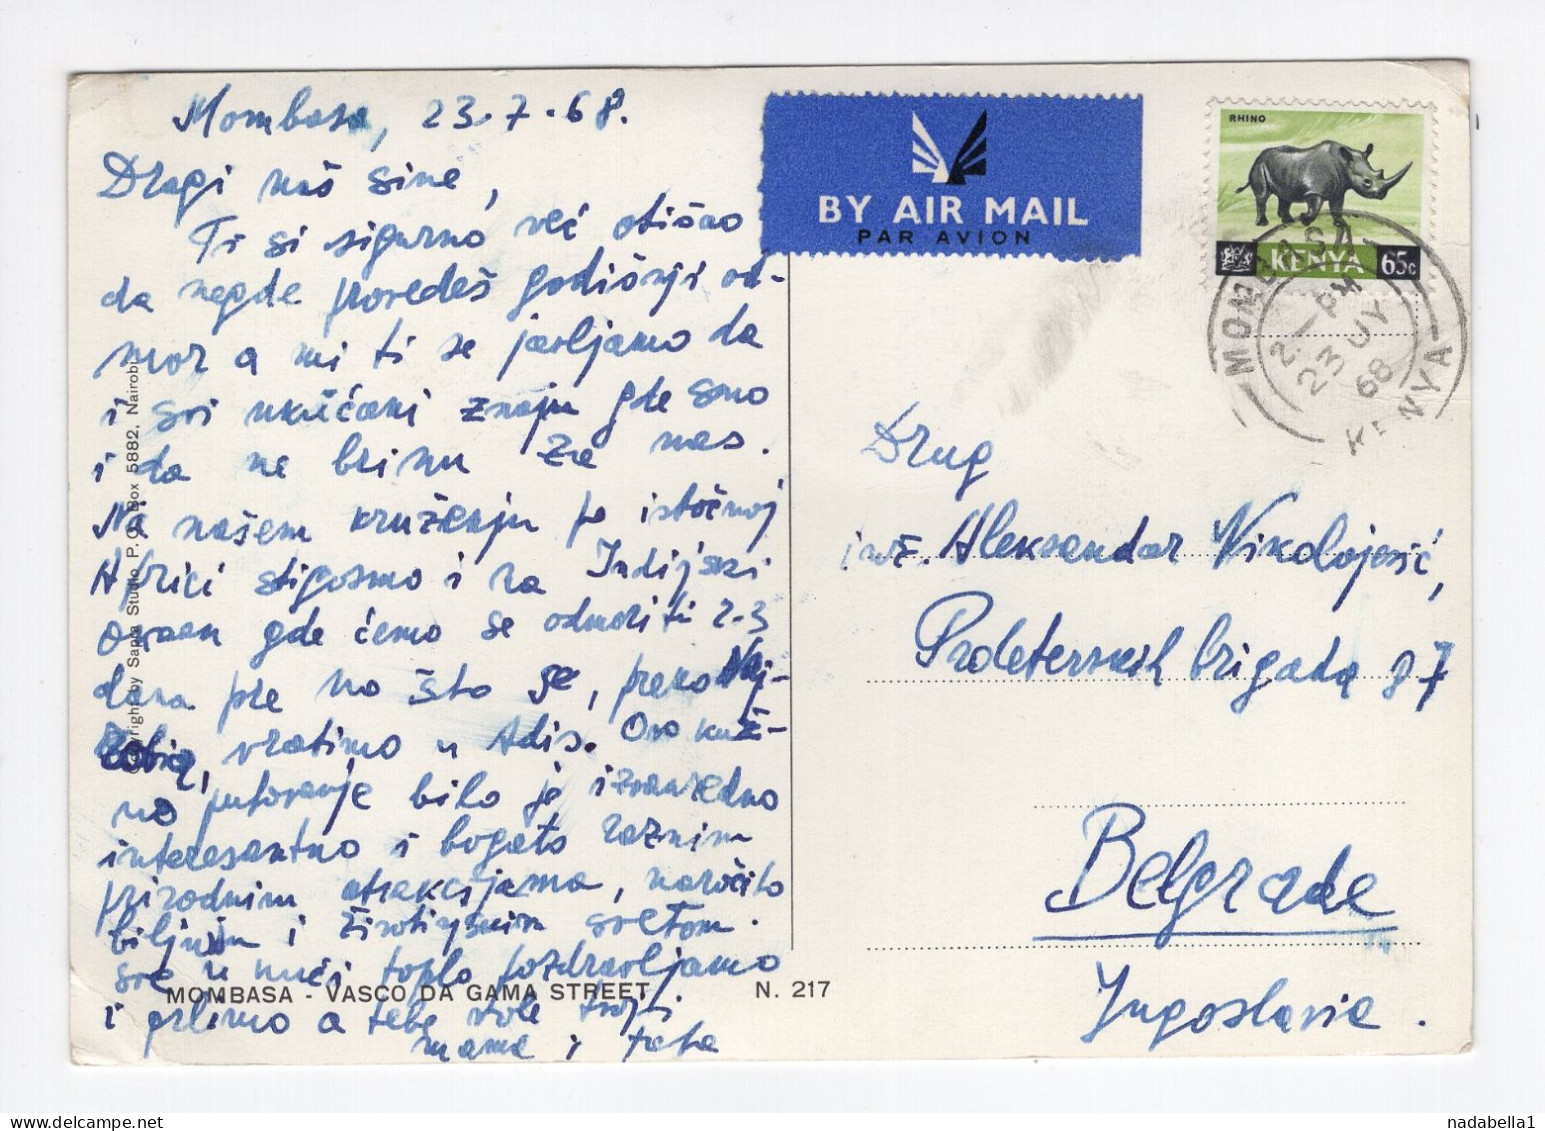 Mombasa, 23.7.68.
Dragi naš sine,
Ti si sigurno već otišao
da negde provedeš godišnji od-
mor a mi ti se javljamo da
i svi ukućani znaju gde smo
i da ne brinu za nas.
Na našem kruženju po istočnoj
Africi stigosmo i na Indijski
Okean gde ćemo se odmoriti 2-3
dana pre no što se, preko Naj-
robia, vratimo u Adis. Ovo kruž-
no putovanje bilo je izvanredno
interesantno i bogato raznim
prirodnim atrakcijama, naročito
biljnim i životinjskim svetom.
Sve u kući toplo pozdravljamo
i grlimo a tebe vole tvoji
mama i tata
MOMBASA - VASCO DA GAMA STREET
N. 217
Copyright by Sapra Studio, P.O. Box 5882, Nairobi
BY AIR MAIL
PAR AVION
RHINO
KENYA 65c
MOMBASA
2 - PM
23 JY
68
KENYA
Drug
inž. Aleksandar Nikolajević,
Proleterskih brigada 87
Belgrade
Yugoslavia.
nadabella1